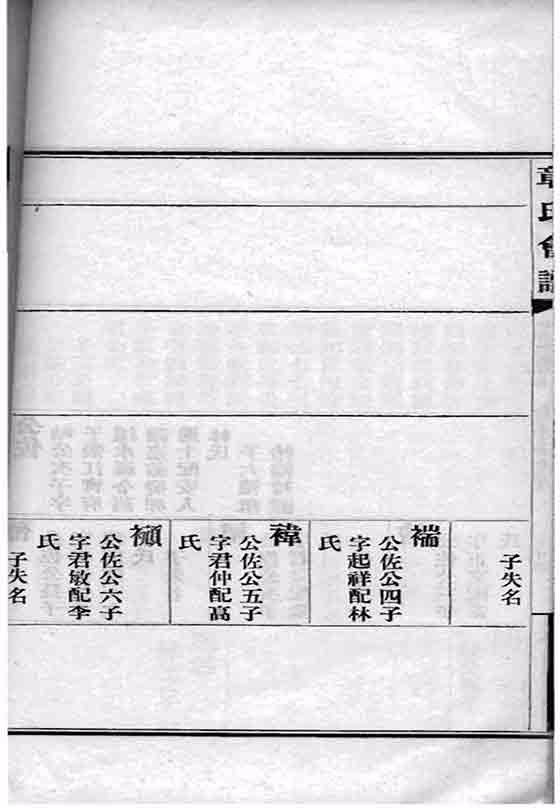 章氏會譜
子失名
褍
公佐公四子
字起祥配林
氏
禕
公佐公五子
字君仲配高
氏
公佐公六子
字君敏配李
氏
子失名